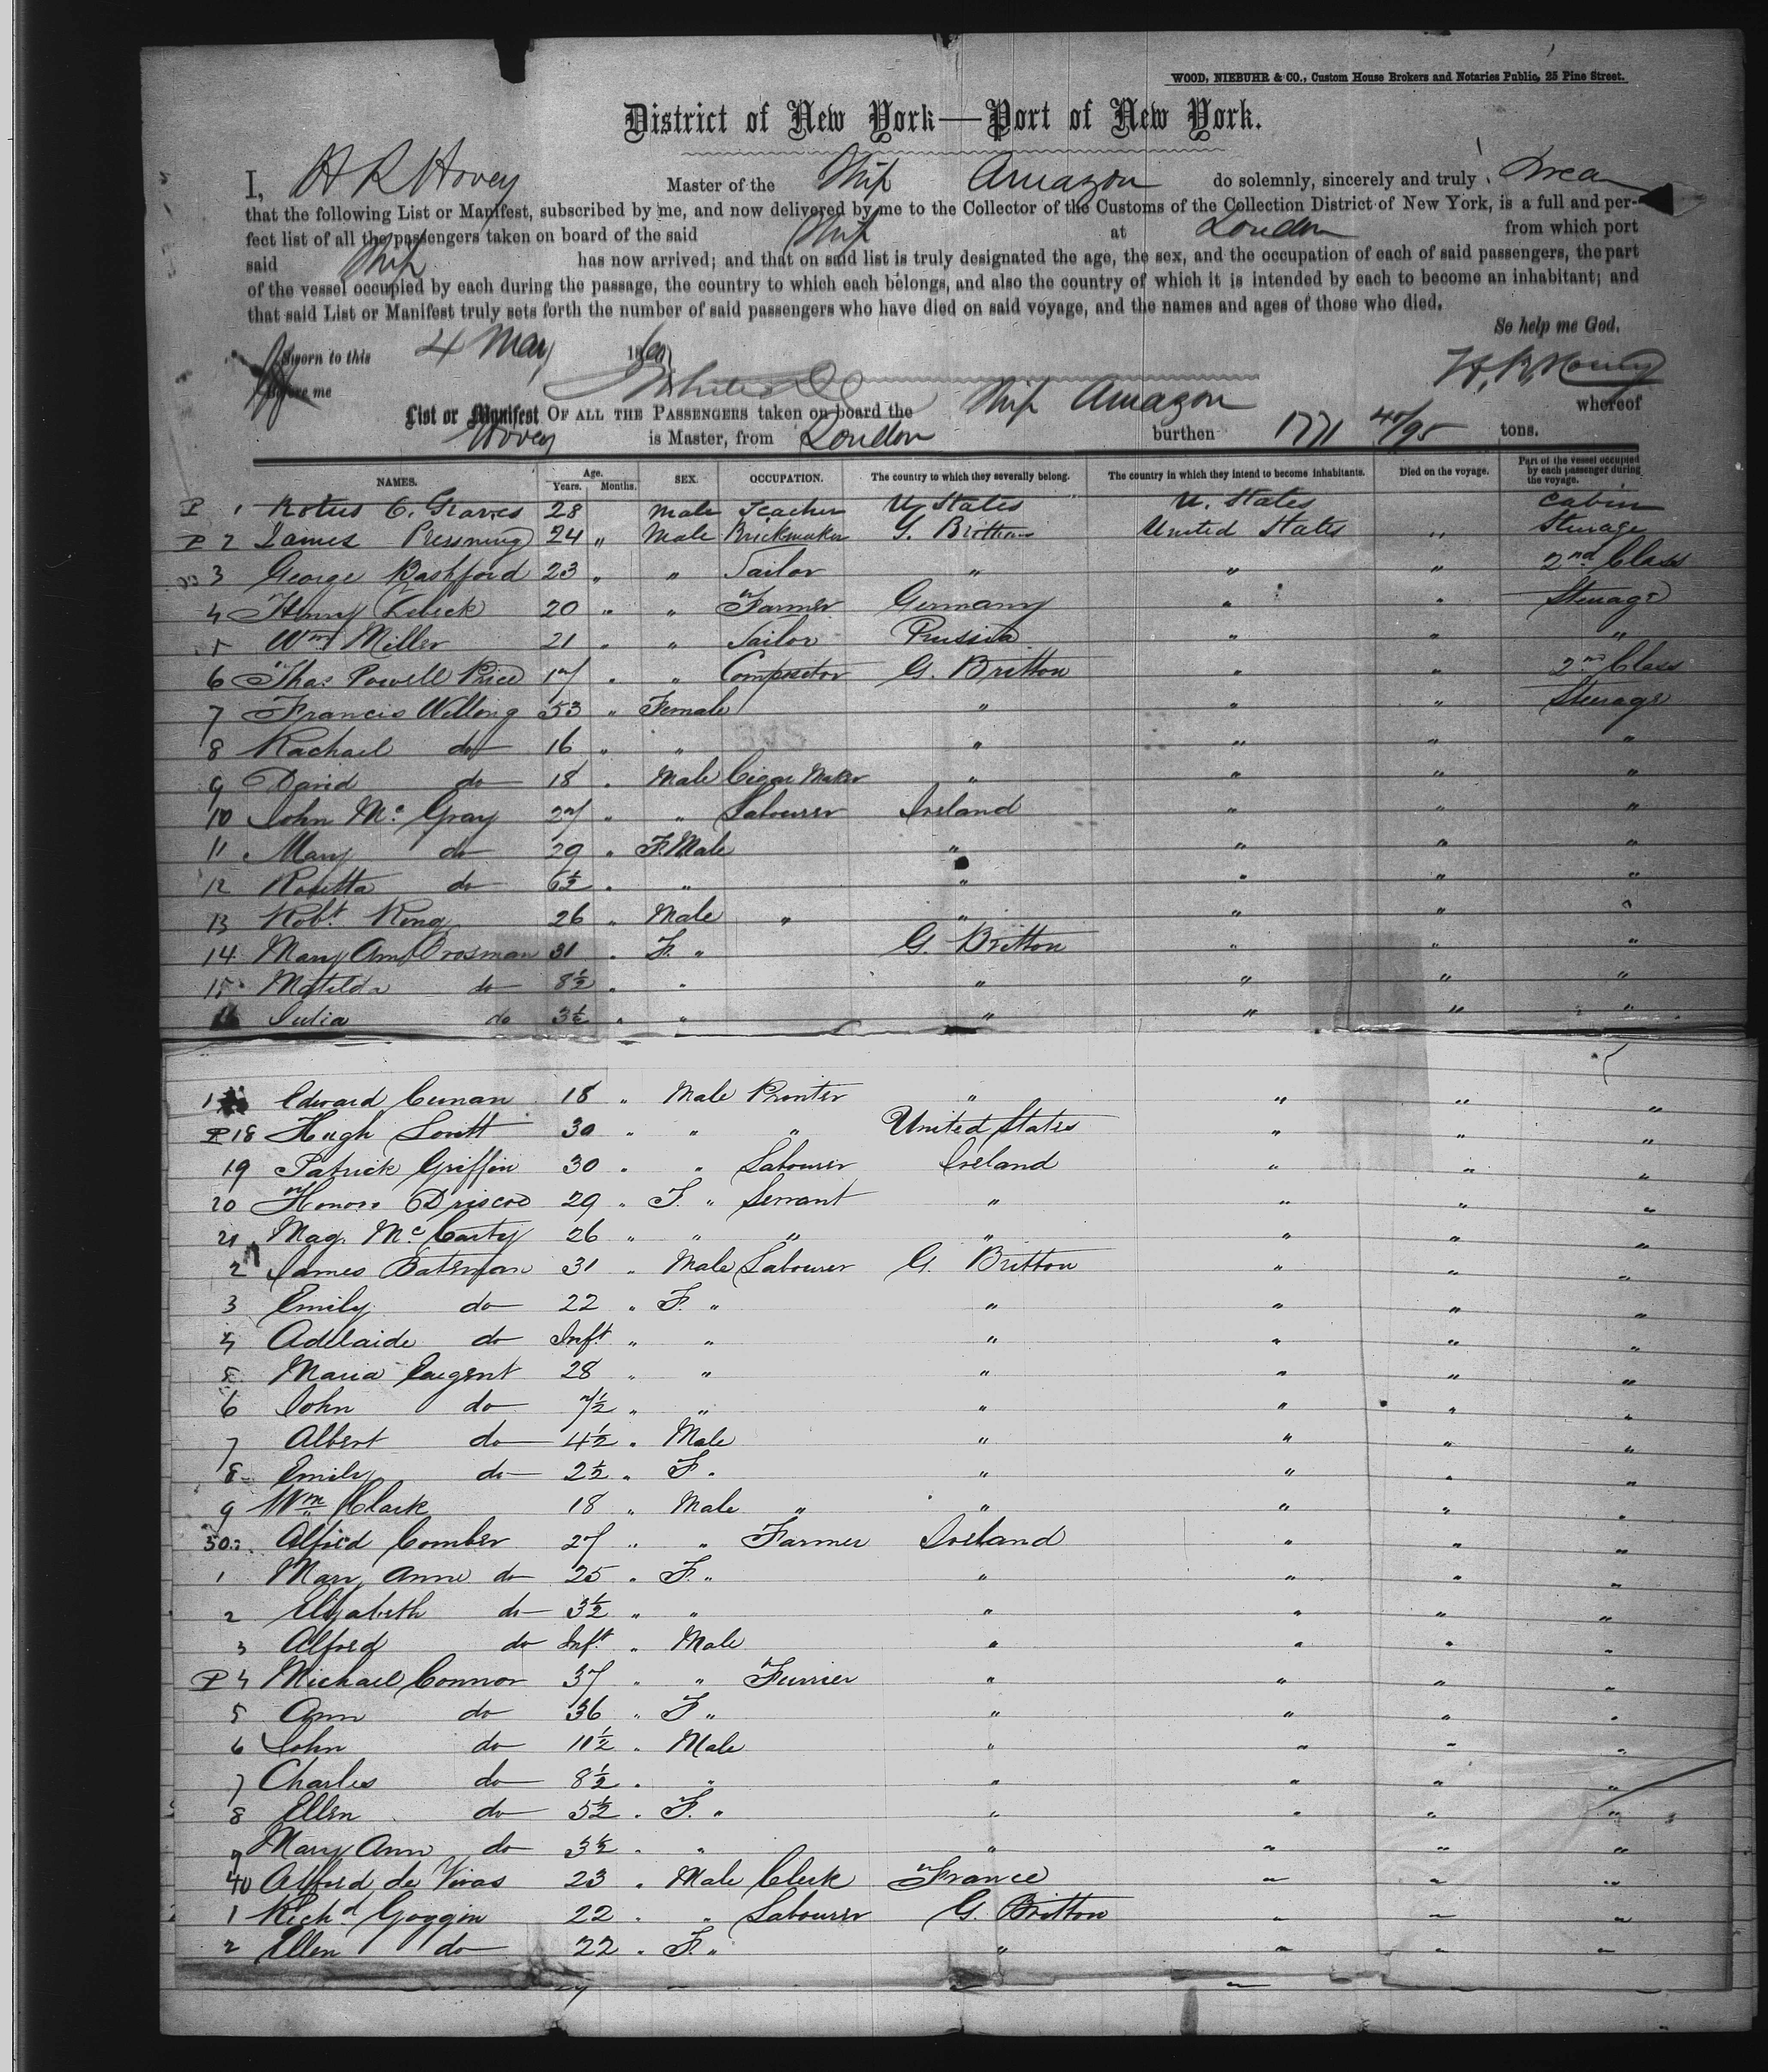 WOOD, NIEBUHR & CO., Custom House Brokers and Notaries Public, 25 Pine Street.
District of New York—Port of New York.
I, H R Hovey Master of the Ship Amazon do solemnly, sincerely and truly swear
that the following List or Manifest, subscribed by me, and now delivered by me to the Collector of the Customs of the Collection District of New York, is a full and per-
fect list of all the passengers taken on board of the said Ship at London from which port
said Ship has now arrived; and that on said list is truly designated the age, the sex, and the occupation of each of said passengers, the part
of the vessel occupied by each during the passage, the country to which each belongs, and also the country of which it is intended by each to become an inhabitant; and
that said List or Manifest truly sets forth the number of said passengers who have died on said voyage, and the names and ages of those who died.
So help me God.
Sworn to this 4 May 186
Before me H. R. Hovey
List or Manifest OF ALL THE PASSENGERS taken on board the Ship Amazon whereof
Hovey is Master, from London burthen 1771 40/95 tons.
NAMES. Age. Years. Months. SEX. OCCUPATION. The country to which they severally belong. The country in which they intend to become inhabitants. Died on the voyage. Part of the vessel occupied by each passenger during the voyage.
P 1 C. Graves 28 Male Teacher U States U. States Cabin
P 2 James Pressning 24 " Male Brickmaker G. Britton United States " Sterage
3 George Bashford 23 " " Sailor " " " 2nd Class
4 Henry 20 " " Farmer Germany " " Sterage
5 Wm Miller 21 " " Sailor Prussia " " "
6 Thos Powell Price 17 " " Compositor G. Britton " " 2nd Class
7 Francis Willong 53 " Female " " " Sterage
8 Rachael do 16 " " " " " "
9 David do 18 " Male Cigar Maker " " " "
10 John Mc Gray 27 " " Labourer Ireland " " "
11 Mary do 29 " F. Male " " " "
12 Rosetta do 6½ " " " " " "
13 Robt King 26 " Male " " " " "
14 Mary Ann Crosman 31 " F. " G. Britton " " "
15 Matilda do 8½ " " " " " "
16 Julia do 3½ " " " " " "
1 Edward Cunan 18 " Male Printer " " " "
P 18 Hugh Lovitt 30 " " " United States " " "
19 Patrick Griffin 30 " " Labourer Ireland " " "
20 Honora Driscod 29 " F. " Servant " " " "
21 Mag. Mc Carty 26 " " " " " " "
2 James Bateman 31 " Male Labourer G. Britton " " "
3 Emily do 22 " F. " " " " "
4 Adelaide do Inft " " " " " "
5 Maria Sargent 28 " " " " "
6 John do 7½ " " " " " "
7 Albert do 4½ " Male " " " "
8 Emily do 2½ " F. " " " "
9 Wm Clark 18 " Male " " " " "
30 Alfred Comber 27 " " Farmer Ireland " " "
1 Mary Anne do 25 " F. " " " " "
2 Elizabeth do 3½ " " " " " "
3 Alfred do Inft " Male " " " "
P 4 Michael Connor 37 " " Furrier " " " "
5 Ann do 36 " F " " " " "
6 John do 11½ " Male " " " "
7 Charles do 8½ " " " " " "
8 Ellen do 5½ " F. " " " " "
9 Mary Ann do 3½ " " " " " "
40 Alfred de Vivas 23 " Male Clerk France " " "
1 Richd Goggin 22 " " Labourer G. Britton " " "
2 Ellen do 22 " F. " " " " "